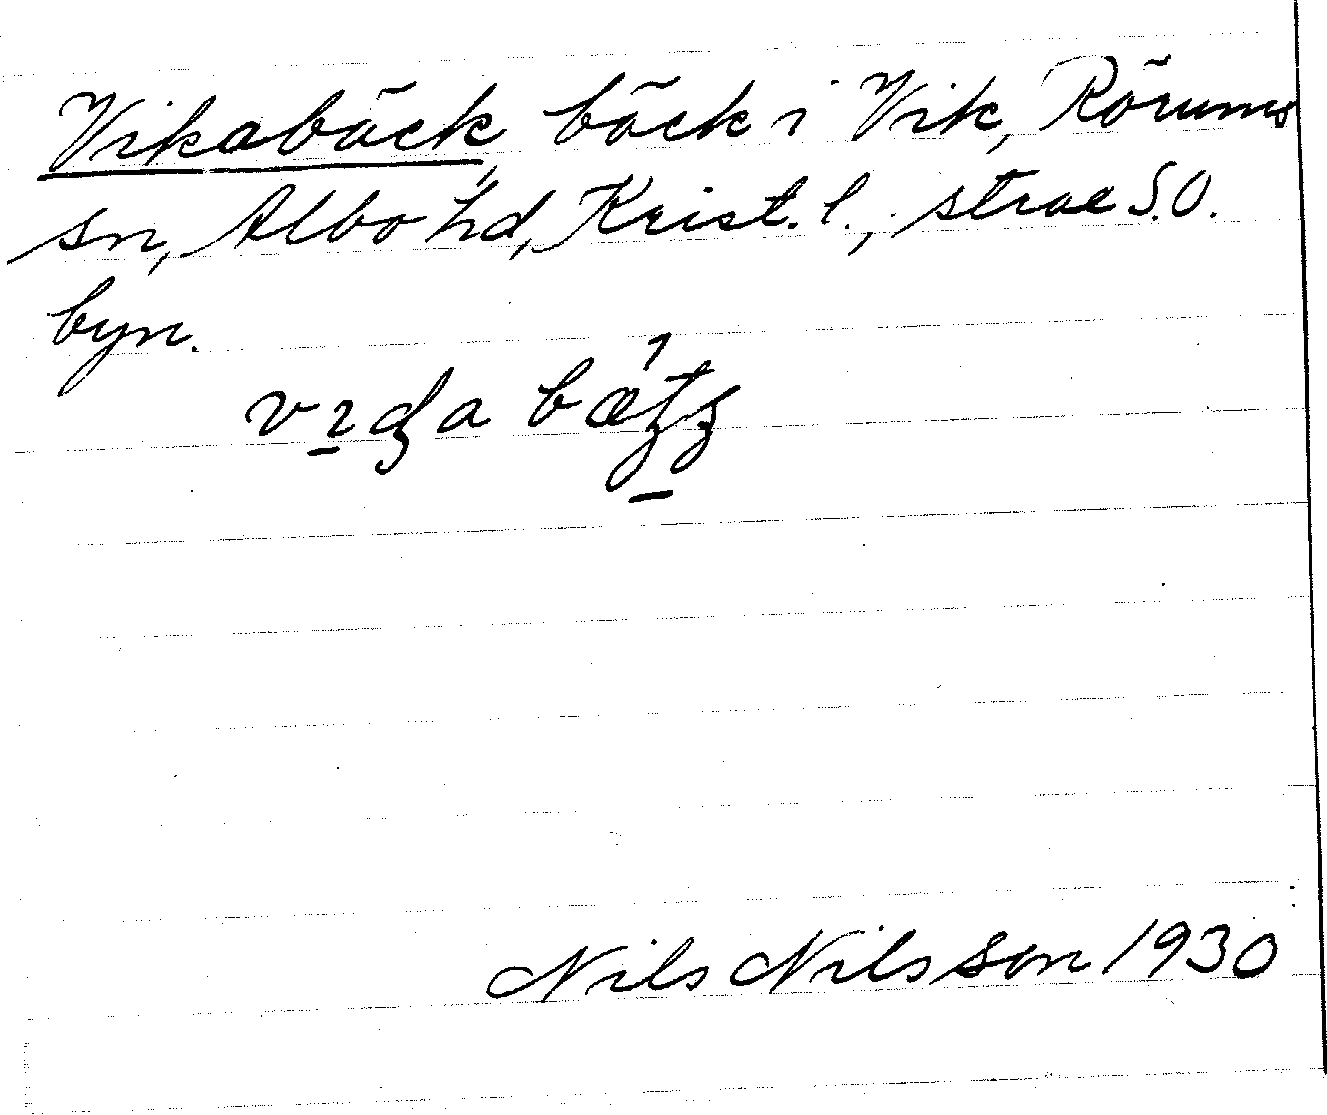 Vikabäck, bäck i Vik, Rörums
sn, Albo hd, Krist. l., strax S.O.
byn.
Nils Nilsson 1930